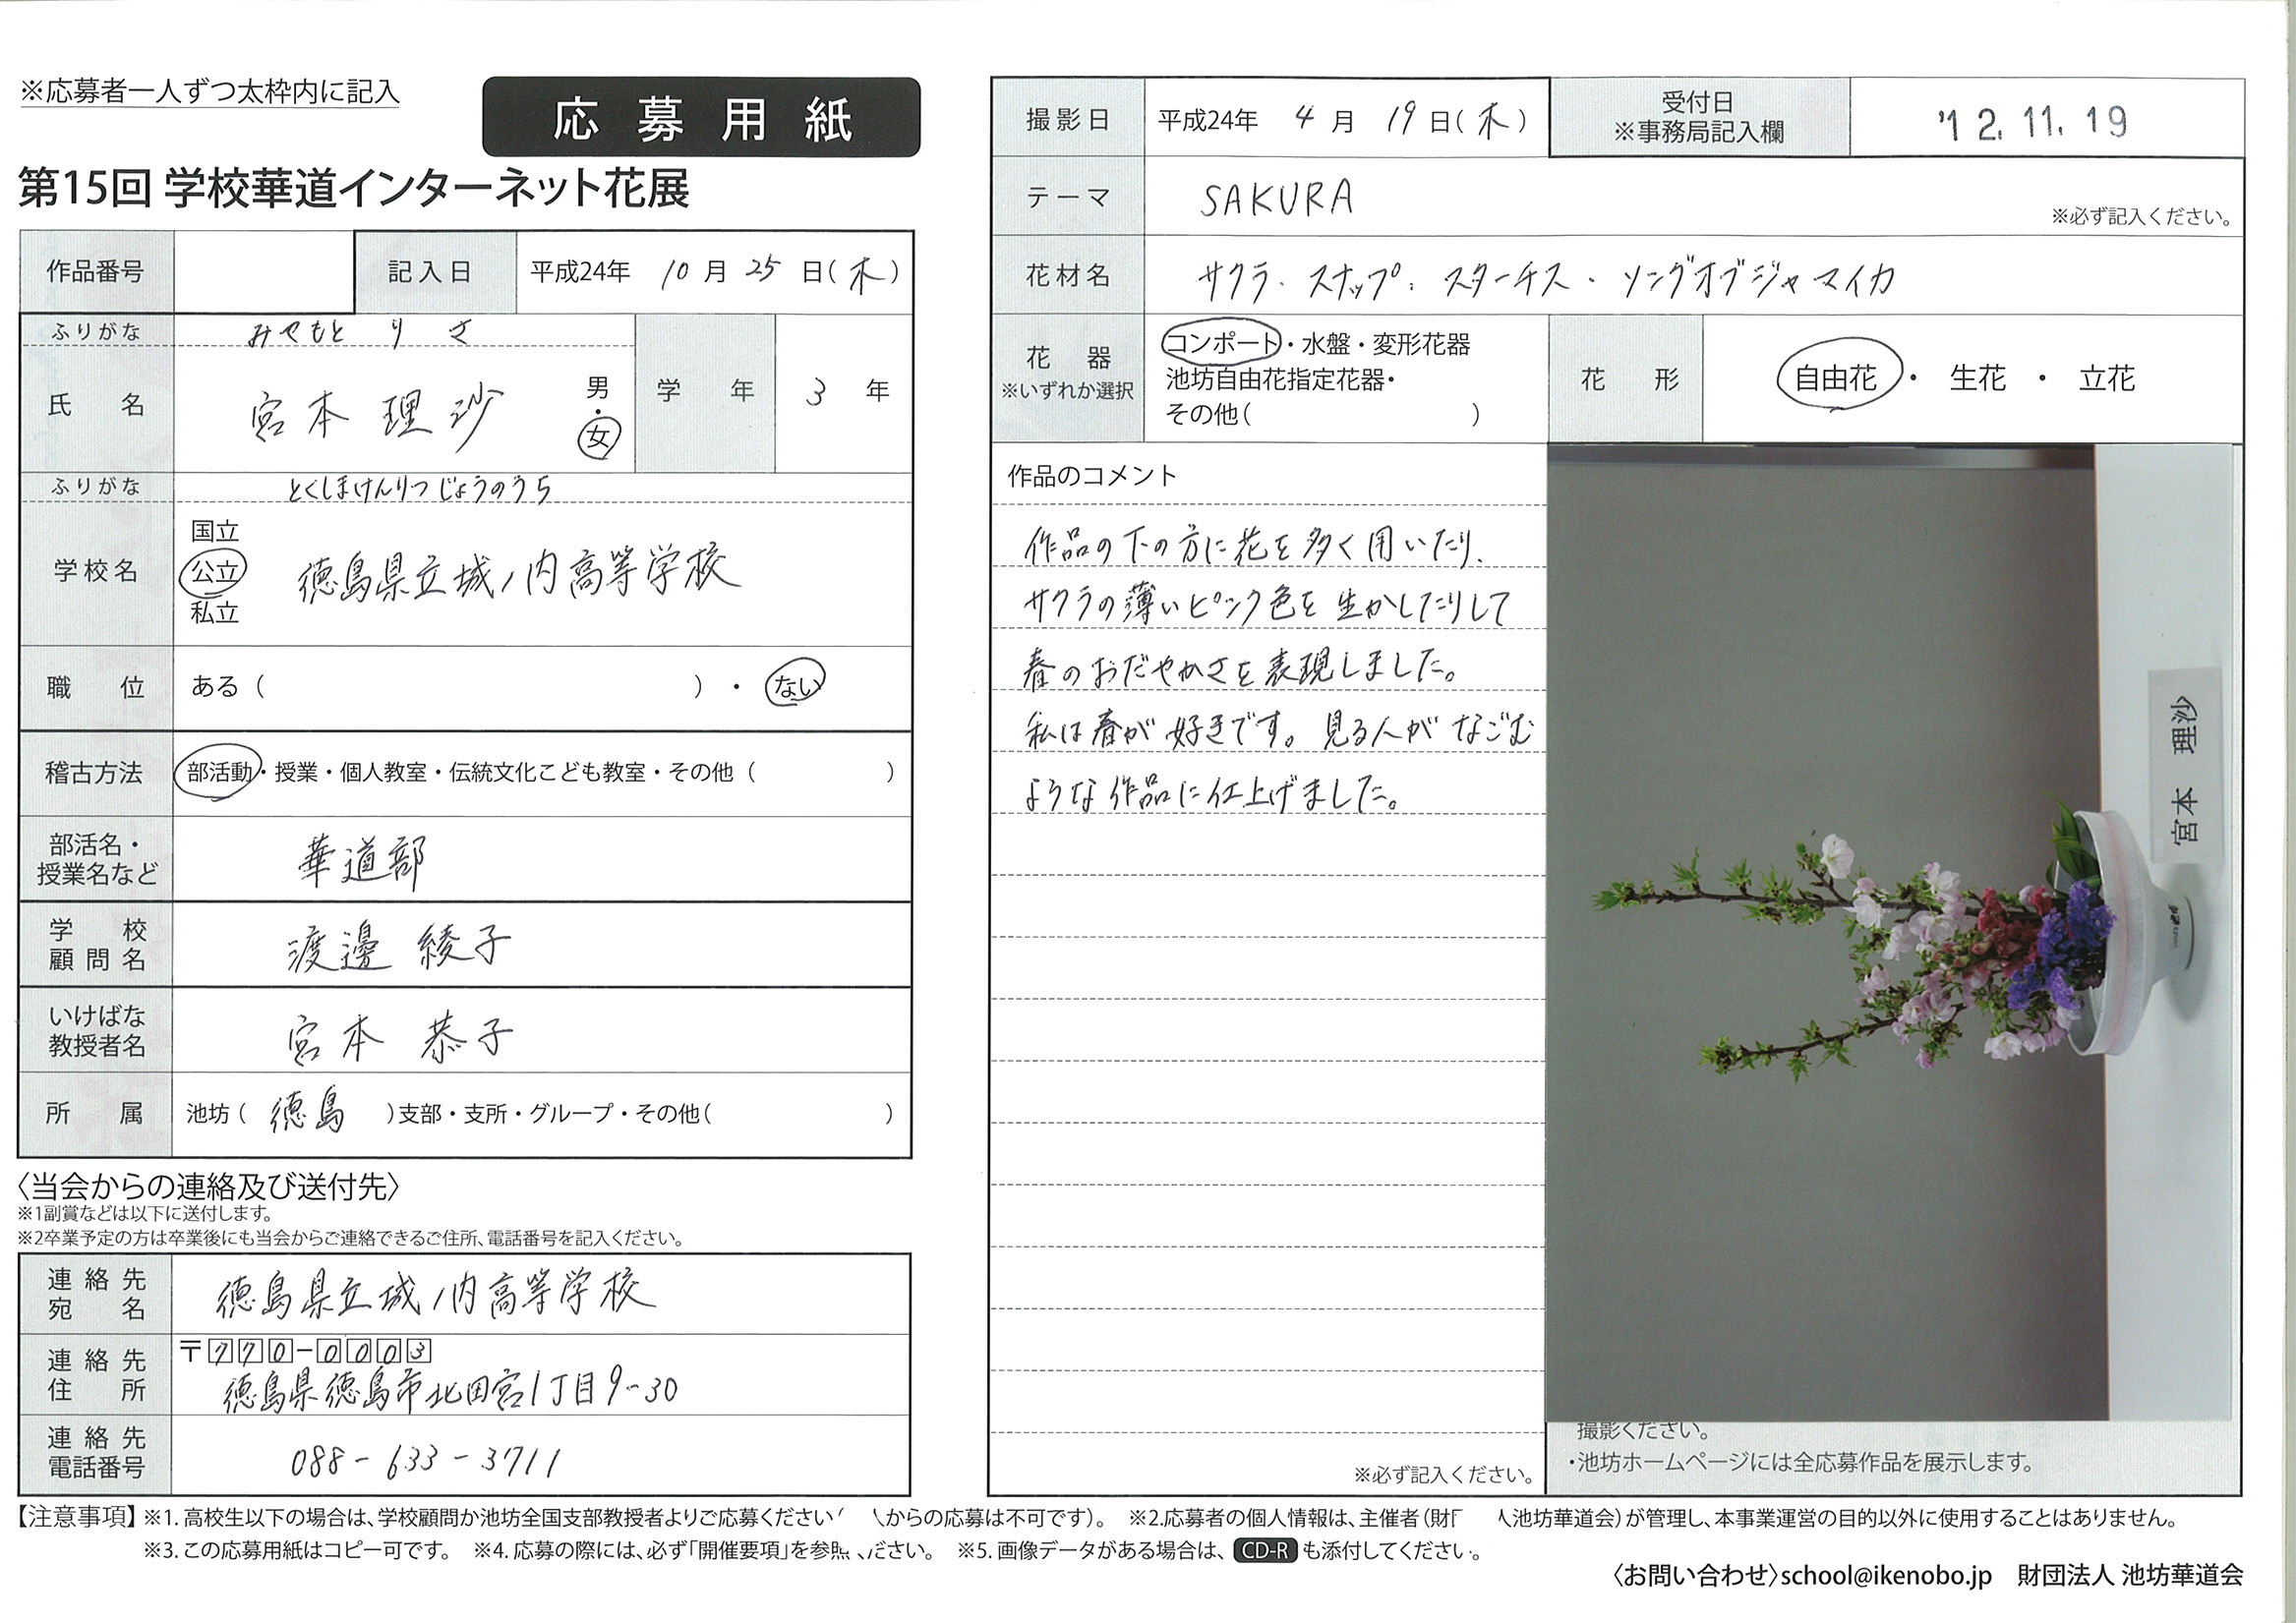 ※応募者一人ずつ太枠内に記入
応募用紙
第15回 学校華道インターネット花展
作品番号
記入日 平成24年 10月 25日(木)
ふりがな みやもと りさ
氏名 宮本 理沙 男・女
学年 3年
ふりがな とくしまけんりつじょうのうち
学校名 国立 公立 私立 徳島県立城ノ内高等学校
職位 ある( )・ない
稽古方法 部活動・授業・個人教室・伝統文化こども教室・その他( )
部活名・授業名など 華道部
学校顧問名 渡邊 綾子
いけばな教授者名 宮本 恭子
所属 池坊( 徳島 )支部・支所・グループ・その他( )
〈当会からの連絡及び送付先〉
※1副賞などは以下に送付します。
※2卒業予定の方は卒業後にも当会からご連絡できるご住所、電話番号を記入ください。
連絡先宛名 徳島県立城ノ内高等学校
連絡先住所 〒770-0003
徳島県徳島市北田宮1丁目9-30
連絡先電話番号 088-633-3711
撮影日 平成24年 4月 19日(木)
受付日 ※事務局記入欄 '12.11.19
テーマ SAKURA ※必ず記入ください。
花材名 サクラ・スナップ・スターチス・ソングオブジャマイカ
花器 ※いずれか選択
コンポート・水盤・変形花器
池坊自由花指定花器・
その他( )
花形 自由花・生花・立花
作品のコメント
作品の下の方に花を多く用いたり、
サクラの薄いピンク色を生かしたりして
春のおだやかさを表現しました。
私は春が好きです。見る人がなごむ
ような作品に仕上げました。
※必ず記入ください。
宮本 理沙
撮影ください。
・池坊ホームページには全応募作品を展示します。
【注意事項】※1. 高校生以下の場合は、学校顧問か池坊全国支部教授者よりご応募ください( 人からの応募は不可です)。 ※2.応募者の個人情報は、主催者(財団 人池坊華道会)が管理し、本事業運営の目的以外に使用することはありません。
※3. この応募用紙はコピー可です。 ※4. 応募の際には、必ず「開催要項」を参照ください。 ※5. 画像データがある場合は、CD-Rも添付してください。
〈お問い合わせ〉school@ikenobo.jp 財団法人 池坊華道会